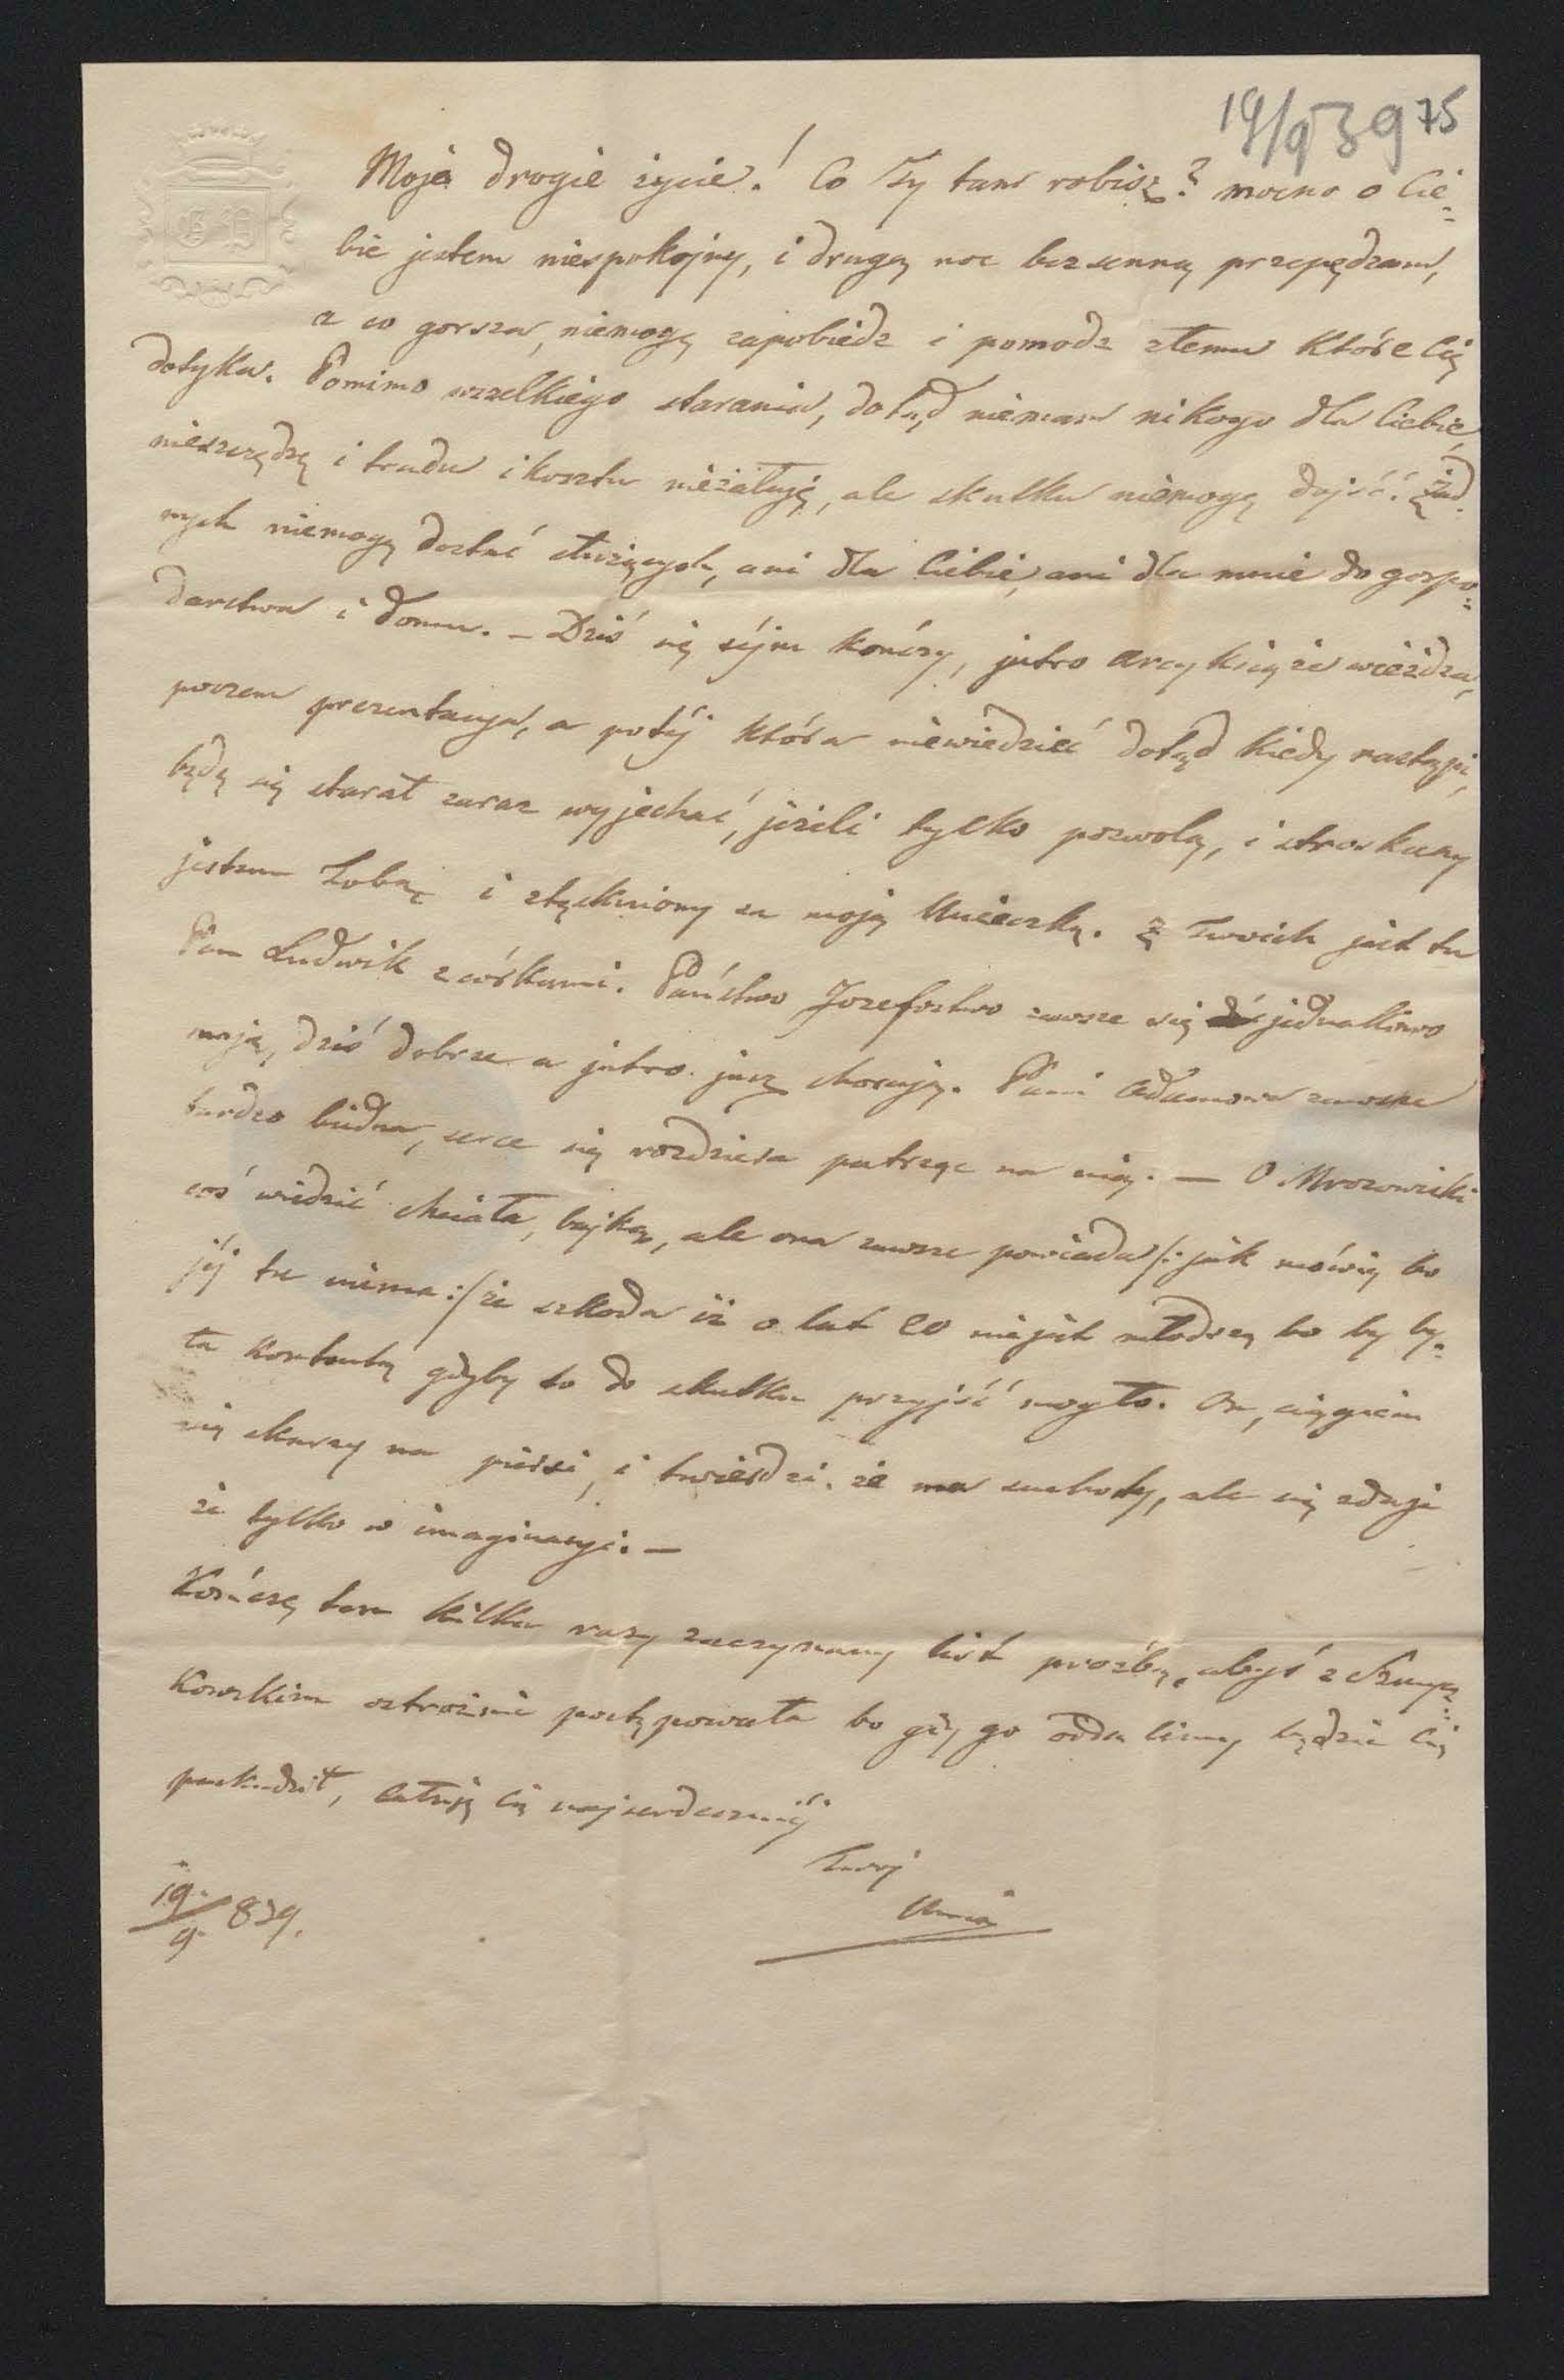 19/9 39 75
Moje drogie życie! Co Ty tam robisz? mocno o Cie=
bie jestem niespokojny, i drugą noc bezsenną przepędzam,
a co gorsza, niemogę zapobiedz i pomodz złemu które Cię
dotyka. Pomimo wszelkiego starania, dotąd niemam nikogo dla Ciebie,
nieszczędzę i trudu i kosztu nieżałuję, ale skutku niemogę dojść! żad=
nych niemogę dostać służących, ani dla Ciebie, ani dla mnie do gospo=
darstwa i domu. – Dziś się séjm kończy, jutro Arcyksiąże wieżdza,
poczem prezentacya, a potéj która niewiedzieć dotąd kiedy nastąpi,
będę się starał zaraz wyjechać, jeżeli tylko pozwolą, i stroskany
jestem Tobą i stęskniony za moją Unieczką. Z Twoich jest tu
Pan Ludwik z córkami. Państwo Jozefostwo zawsze się jednakowo
mają, dziś dobrze a jutro już chorują. Pani Adamowa zawsze
bardzo biedna, serce się rozdziera patrząc na nią. — O Mrozowicki
coś wiedzieć chciała, bajką, ale ona zawsze powiada /: jak mówią bo
jéj tu niema :/ że szkoda iż o lat 20 niejest młodszą bo by by=
ła kontentą gdyby to do skutku przyjść mogło. On, ciągiem
się skarży na piersi, i twierdzi że ma suchoty, ale się zdaje
że tylko w imaginacyi. —
Kończę ten kilka razy zaczynany list prośbą, abyś z
kowskim ostrożnie postępowała bo gdy go oddalimy będzie Cię
paskudził, całuję Cię najserdeczniéj
Twój
19./9. 839.